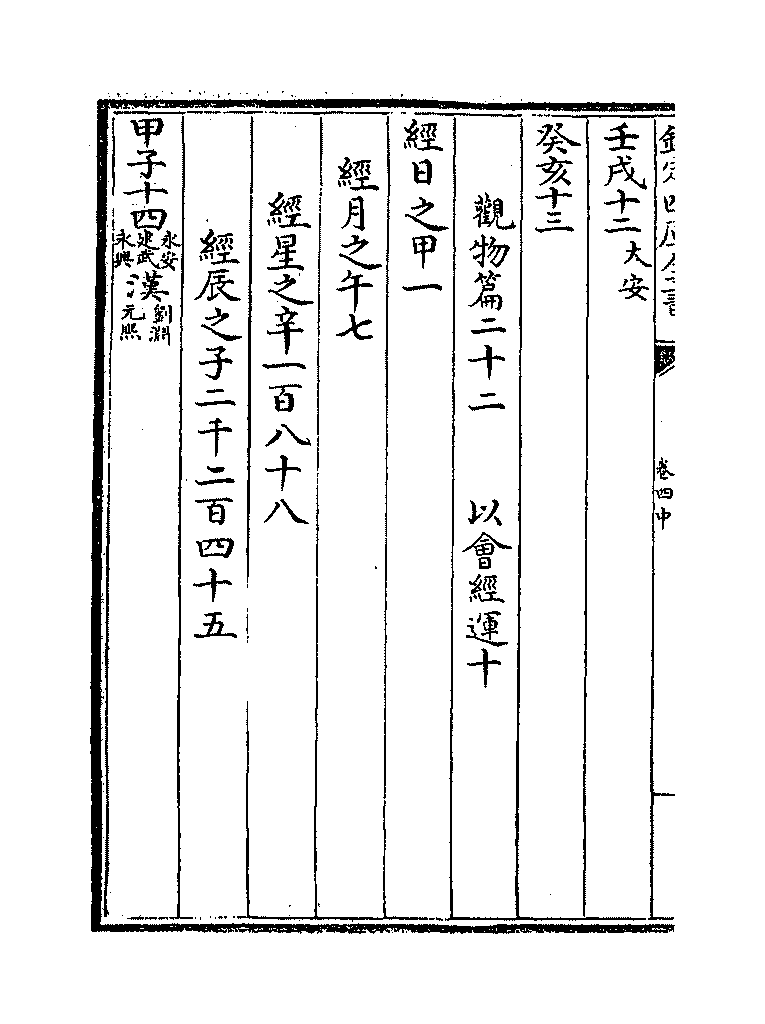 欽定四庫全書 卷四中
壬戌十二 大安
癸亥十三
觀物篇二十二 以會經運十
經日之甲一
經月之午七
經星之辛一百八十八
經辰之子二千二百四十五
甲子十四 永安 建武 永興 漢 劉淵 元熙